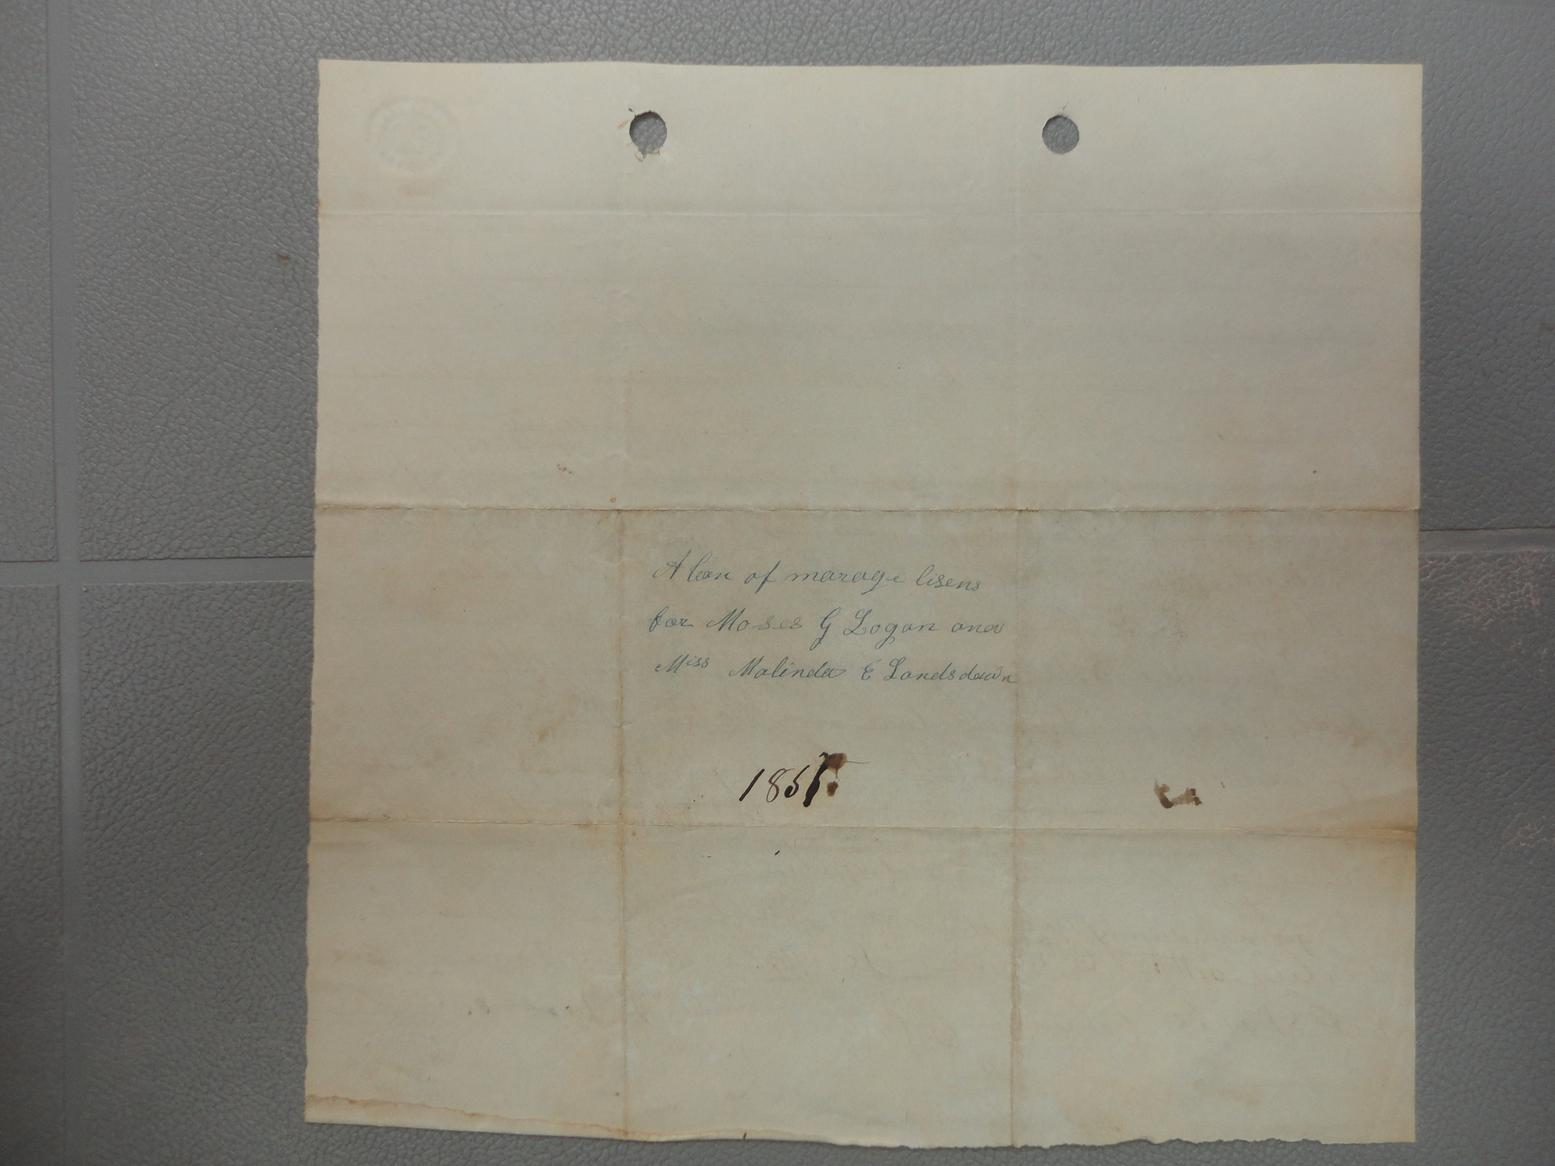 A lan of marage lisens
for Moses G Logan and
Miss Malinda E Landsdawn
1855